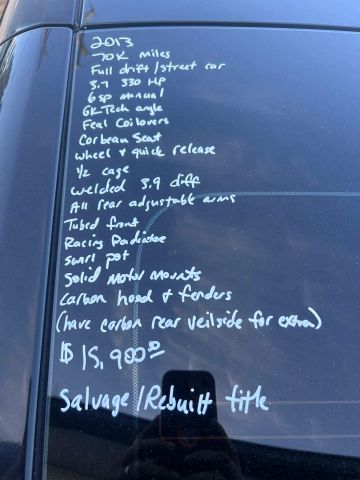 2013
70K miles
Full drift/street car
3.7 330 HP
6sp manual
GKTech angle
Feal Coilovers
Corbeau Seat
wheel & quick release
1/2 cage
welded 3.9 diff
All rear adjustable arms
Tubed front
Racing Radiator
swirl pot
Solid Motor Mounts
Carbon hood & fenders
(have carbon rear veilside for extra)
$15,900.00
Salvage/Rebuilt title